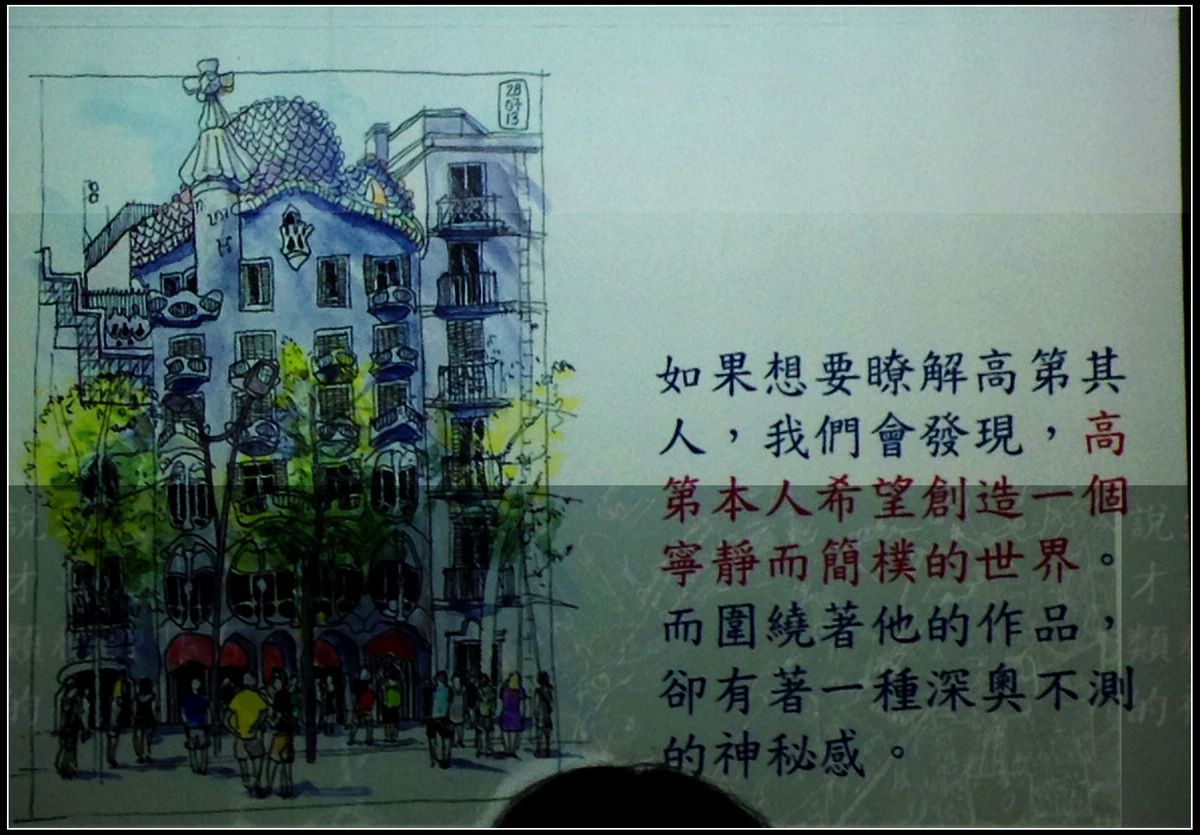 28
07
13
如果想要瞭解高第其
人，我們會發現，高
第本人希望創造一個
寧靜而簡樸的世界。
而圍繞著他的作品，
卻有著一種深奧不測
的神秘感。
說
才
類
的